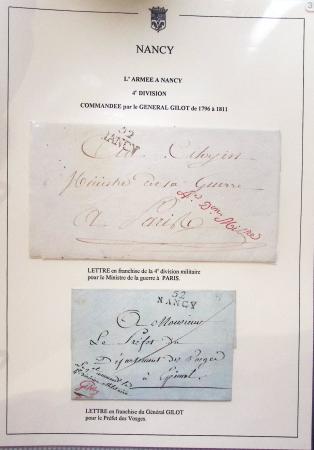 NANCY
L'ARMEE A NANCY
4e DIVISION
COMMANDEE par le GENERAL GILOT de 1796 à 1811
52
NANCY
Au Citoyen
Ministre de la Guerre
4e Don Mil.re
A Paris
LETTRE en franchise de la 4e division militaire
pour le Ministre de la guerre à PARIS.
52
NANCY
A Monsieur
Le Préfet du
Département des Vosges
à Epinal
Gilot
LETTRE en franchise du Général GILOT
pour le Préfet des Vosges.